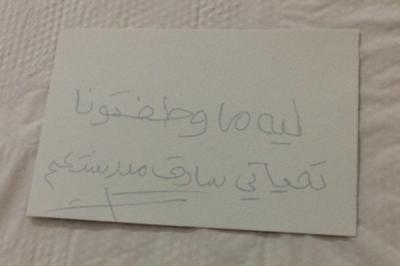 ليه ما وظفتونا
تحياتي سارق مدرستكم